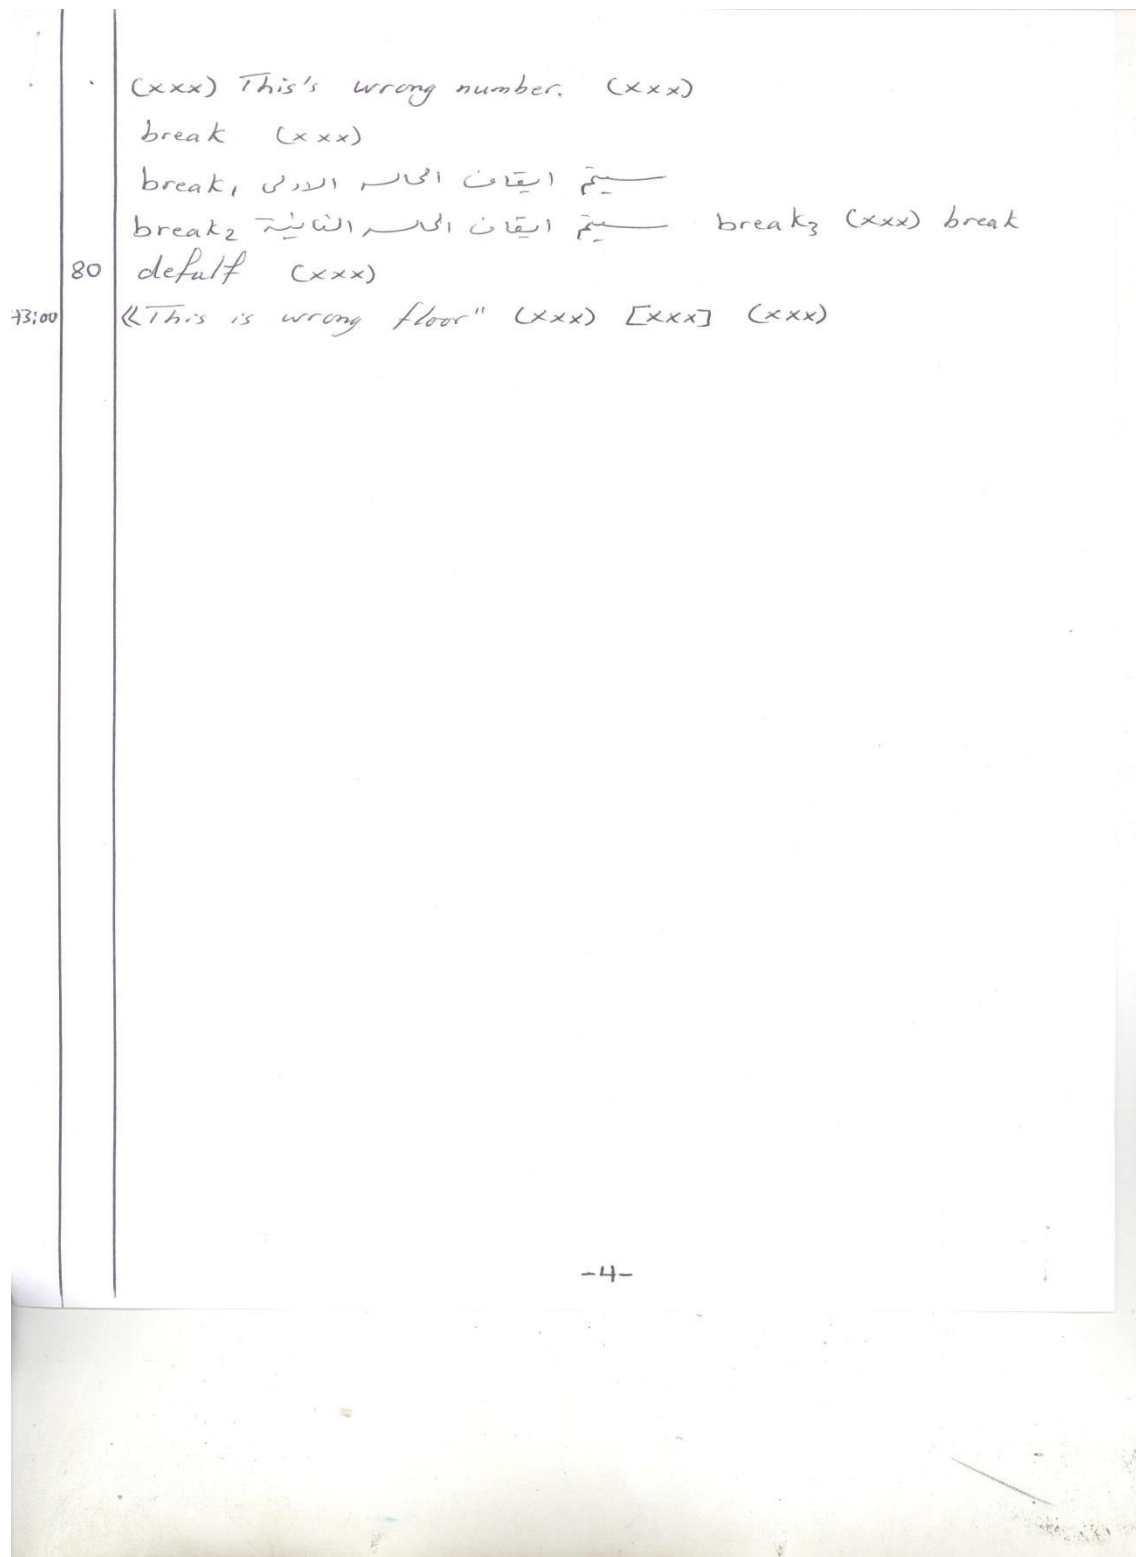 (xxx) This's wrong number. (xxx)
break (xxx)
break1 سيتم ايقاف الحاله الاولى
break2 سيتم ايقاف الحاله الثانية break3 (xxx) break
80 defult (xxx)
73:00 «This is wrong floor" (xxx) [xxx] (xxx)
-4-